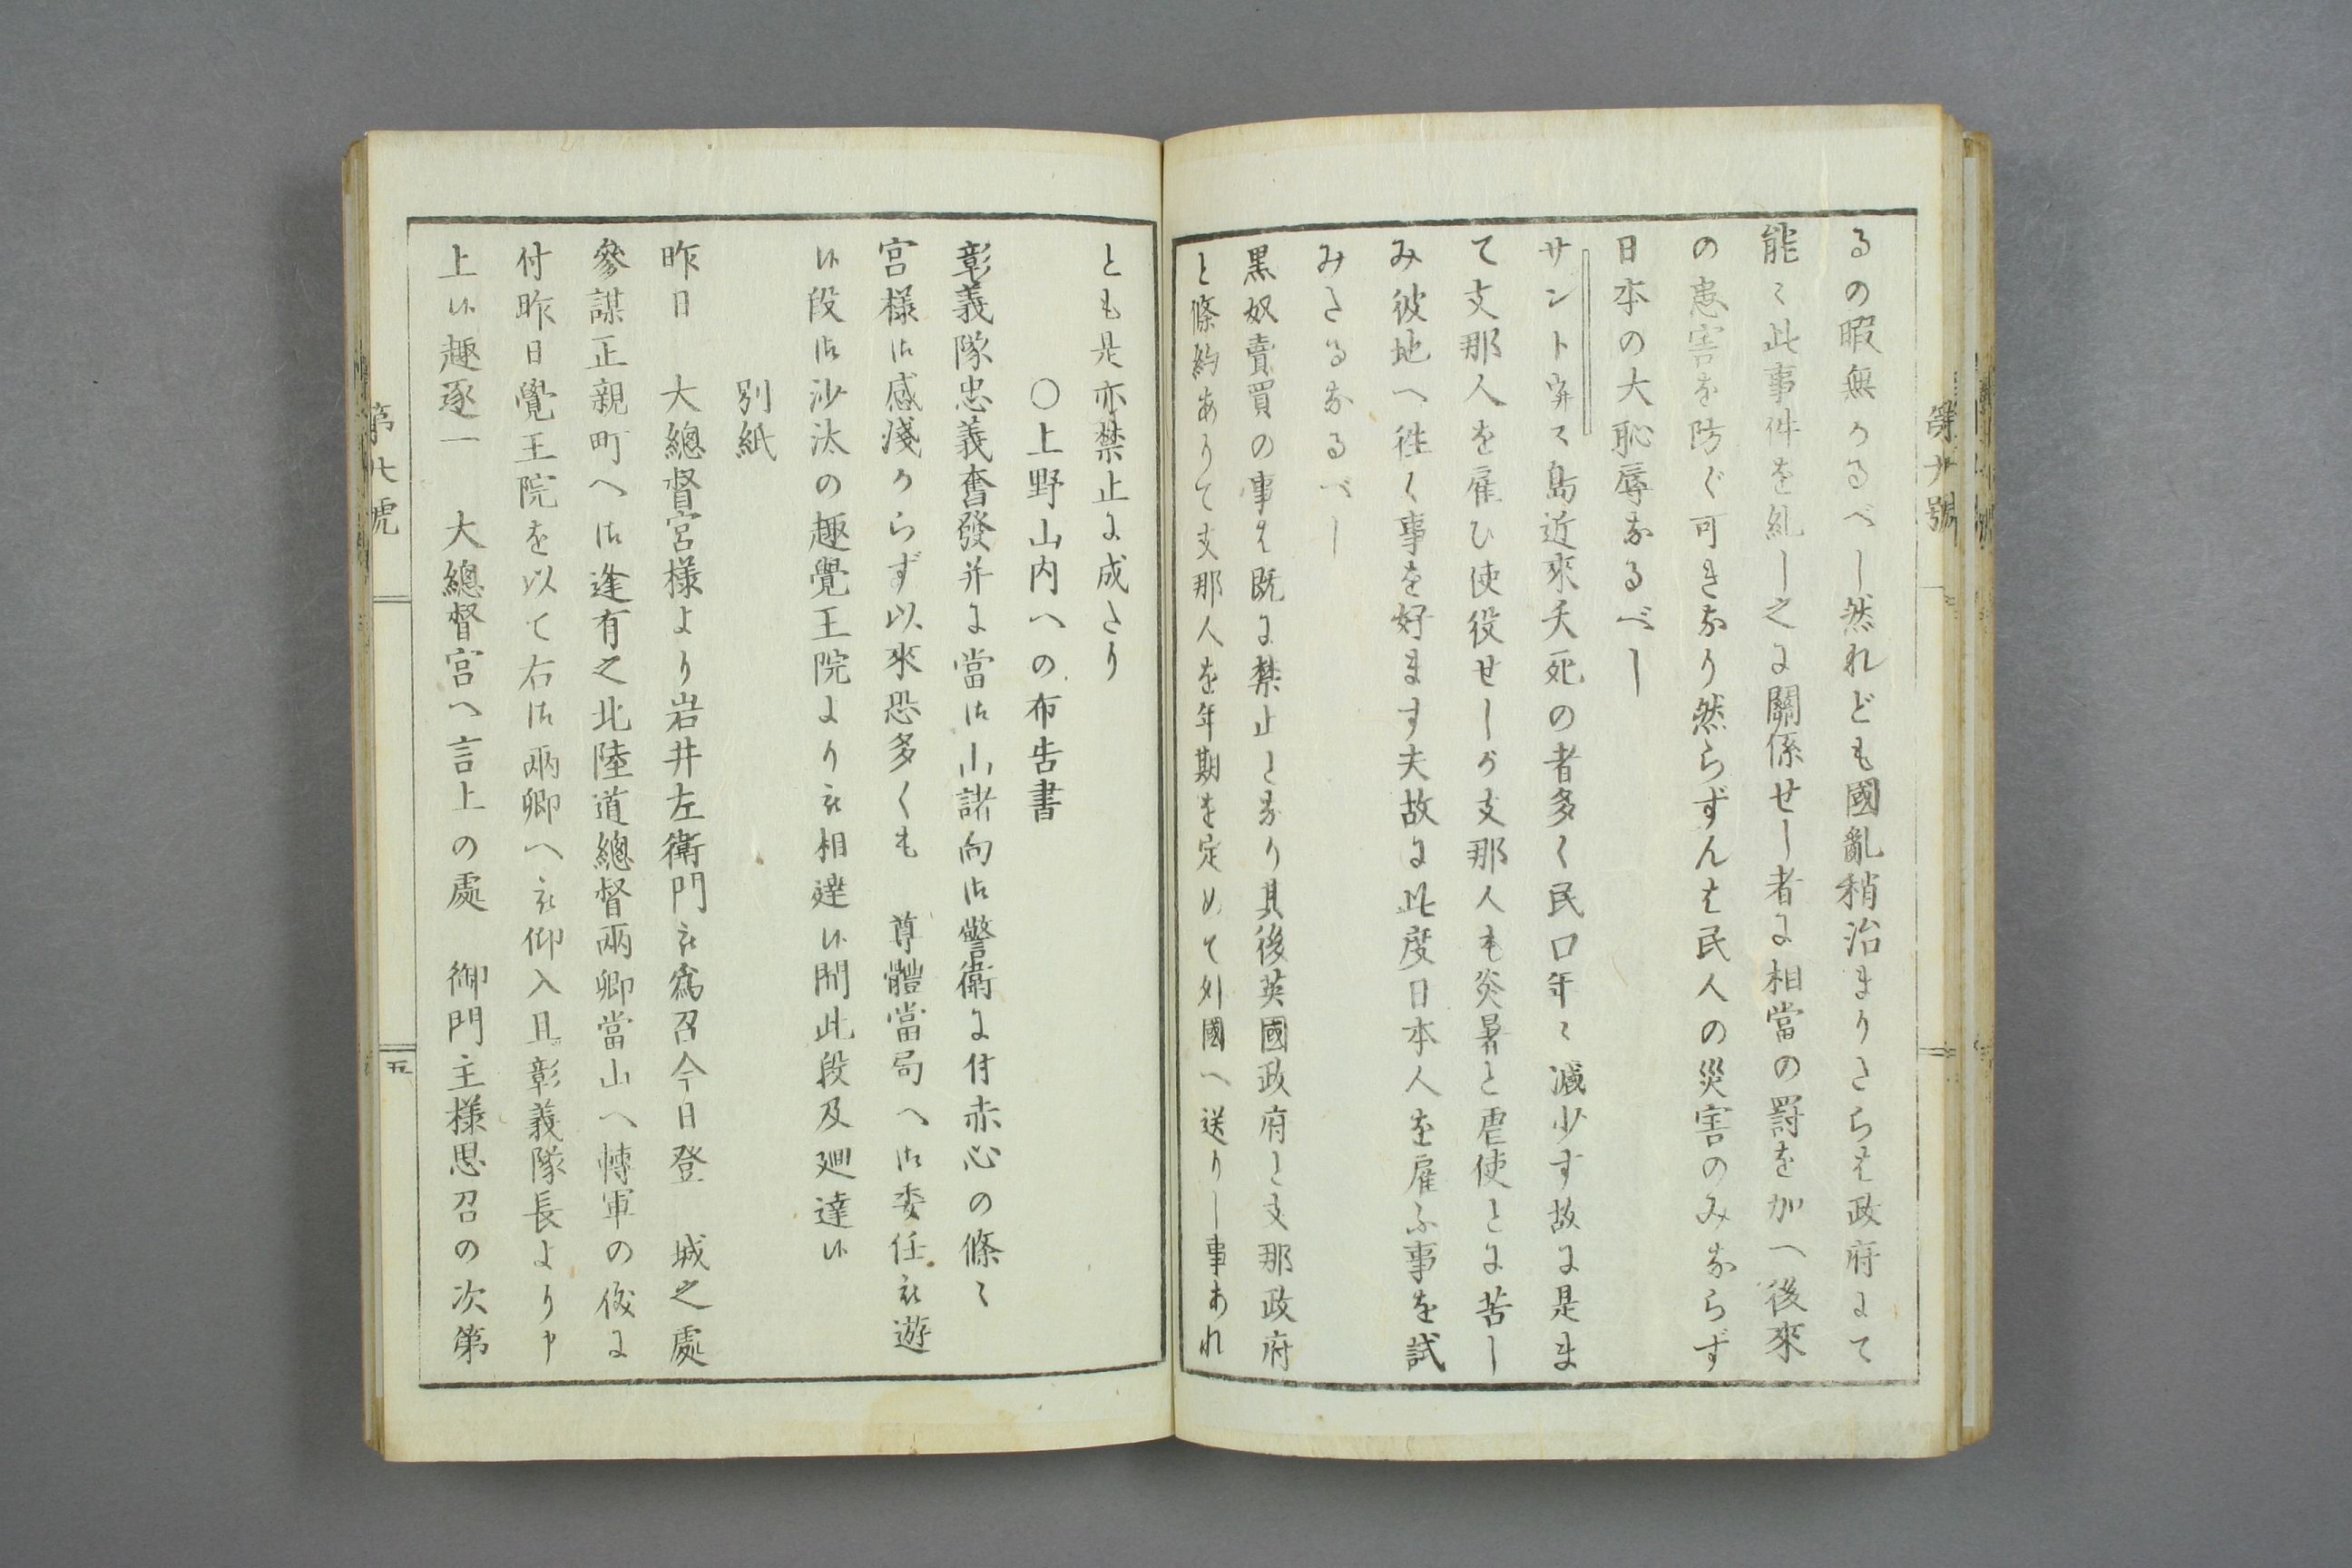 るの暇無かるべし然れども國亂稍治まりさらば政府にて
能々此事件を糺し之に關係せし者に相當の罰を加へ後來
の患害を防ぐ可きなり然らずんば民人の災害のみならず
日本の大恥辱なるべし
サントウヰス島近來夭死の者多く民口年々減少す故に是ま
て支那人を雇ひ使役せしが支那人も炎暑と虐使とに苦し
み彼地へ徃く事を好ます夫故に此度日本人を雇ふ事を試
みさるなるべし
黒奴賣買の事は既に禁止となり其後英國政府と支那政府
と條約ありて支那人を年期を定めて外國へ送りし事あれ
とも是亦禁止に成さり
〇上野山内への布告書
彰義隊忠義奮發并に當御山諸向御警衛に付赤心の條々
宮様御感淺からず以來恐多くも 尊體當局へ御委任被遊
候段御沙汰の趣覺王院より被相達候間此段及廻達候
別紙
昨日 大總督宮様より岩井左衛門被爲召今日登 城之處
參謀正親町へ御逢有之北陸道總督兩卿當山へ轉軍の儀に
付昨日覺王院を以て右御兩卿へ被仰入且彰義隊長より申
上候趣逐一 大總督宮へ言上の處 御門主様思召の次第
第廿號
五